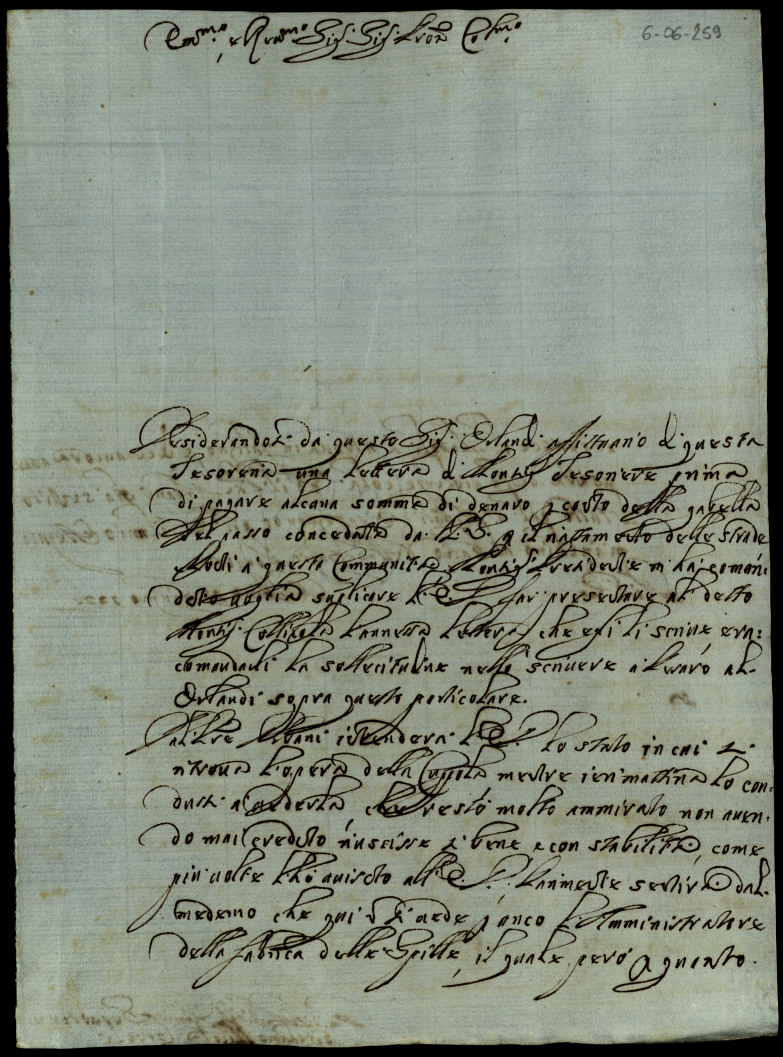 Em.mo, e Rev.mo Sig.r Sig.r Pron Col.mo
6-06-259
Desiderandosi da questo Sig.r Orlandi affittuario di questa
Tesoreria una lettera di Mons.r Tesoriere prima
di pagare alcuna somma di denaro p conto della gabella
del passo conceduta da V.E. p il riattamento delle strade
a questa Communità, Mons.r
detto voglia suplicare V.E. far presentare al detto
Mons.r Collicola l'annessa lettera, che essi li scrive
comandarli la sollecitudine nello scrivere al
Orlandi sopra questo particolare.
Dal Urbani intenderà V.E. lo stato in cui si
ritrova l'opera della Cuppola mentre ieri mattina lo con-
dussi a vederla, che restò molto ammirato non aven-
do mai creduto riuscisse si bene e con stabilità, come
più volte l'hò avisato all'E.V. Parimente sentirà dal
medemo che qui vi è anco l'Amministratore
della fabrica delle Spille, il quale però a quanto